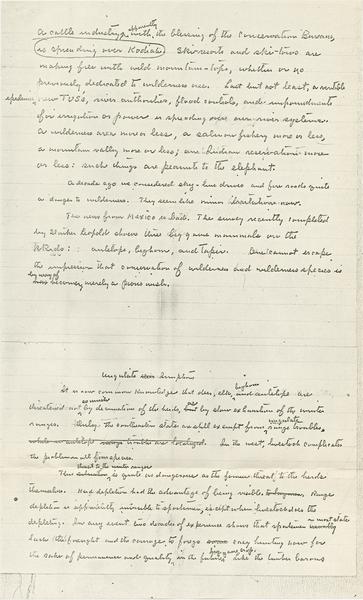 A cattle industry, apparently with the blessing of the Conservation Bureaus,
is spreading over Kodiak. Ski-resorts and ski-tows are
making free with wild mountain-tops, whether or no
previously dedicated to wilderness uses. Last but not least, a veritable
epidemic new TVAs, river authorities, flood controls, and impoundments
for irrigation or power is spreading over our river systems.
A wilderness area more or less, a salmon fishery more or less,
a mountain valley more or less, an Indian reservation more
or less: such things are peanuts to the elephant.
A decade ago we considered sky-line drives and fire roads quite
a danger to wilderness. They seem like minor heartaches now.
The news from Mexico is bad. The survey recently completed
by Starker Leopold shows three big game mammals on the
skids: antelope, bighorn, and tapir. One cannot escape
the impression that conservation of wilderness and wilderness species is
by way of
becoming merely a pious wish.
Ungulate Irruptions
bighorn
It is now common knowledge that deer, elk, and antelope are
threatened not by decimation of the herds, but by slow exhaustion of the winter
ranges. Only the southeastern states are still exempt from ungulate troubles.
In the west, livestock complicates
the problem in all four species.
threat to the winter ranges
This is quite as dangerous as the former threat to the herds
themselves. Herd depletion had the advantage of being visible. Range
depletion is apparently invisible to sportsmen, except when livestock does the
in most states
depleting. In any event two decades of experience shows that sportsmen
lack the foresight and the courage to forego easy hunting now for
big game crops
the sake of permanence and quality in the future. Like the timber barons